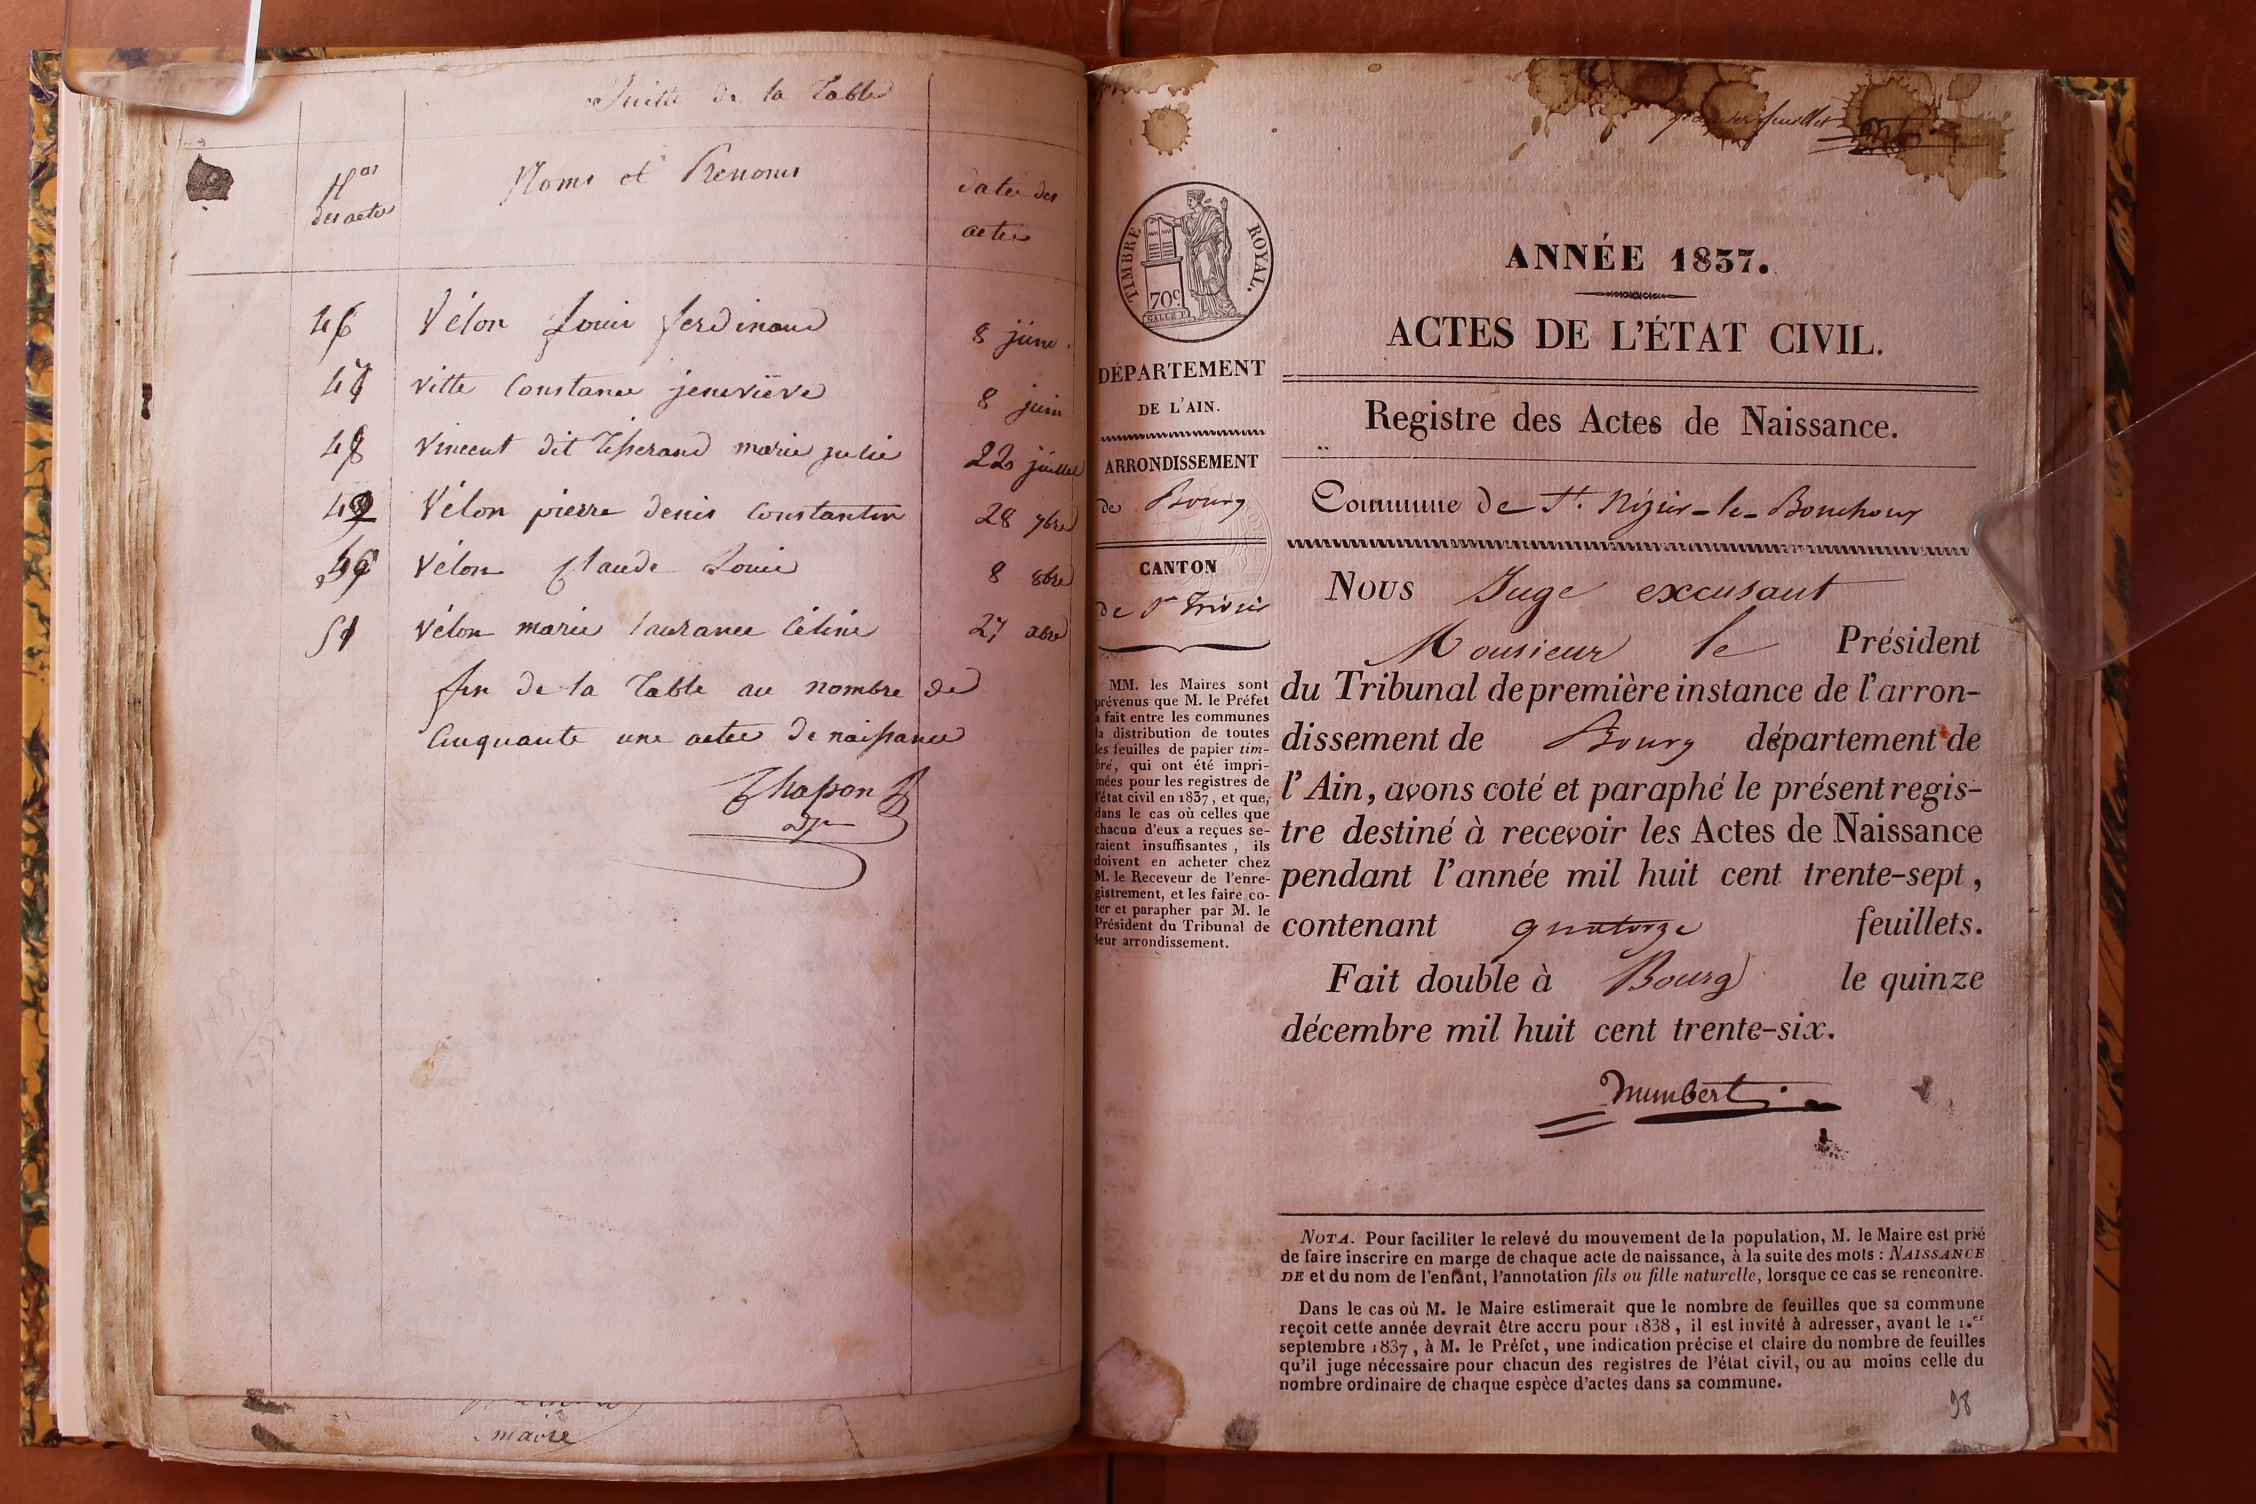 Suitte de la Table
Nos
des actes
Noms et Prenoms
date des
actes
46 Vélon Louis ferdinand 8 juin.
47 vitte Constance jeneviève 8 juin
48 Vincent dit Tisserand marie julie 22 juillet
49 Vélon pierre denis Constantin 28 7bre
50 Vélon Claude Louis 8 8bre
51 Vélon marie Laurance Céline 27 xbre
fin de la Table au nombre de
Cinquante une actes de naissance
maire
premier feuillet
TIMBRE ROYAL.
70c
DÉPARTEMENT
DE L'AIN.
ARRONDISSEMENT
de Bourg
CANTON
de St Trivier
MM. les Maires sont
prévenus que M. le Préfet
a fait entre les communes
la distribution de toutes
les feuilles de papier tim-
bré, qui ont été impri-
mées pour les registres de
l'état civil en 1837, et que,
dans le cas où celles que
chacun d'eux a reçues se-
raient insuffisantes, ils
doivent en acheter chez
M. le Receveur de l'enre-
gistrement, et les faire co-
ter et parapher par M. le
Président du Tribunal de
leur arrondissement.
ANNÉE 1837.
ACTES DE L'ÉTAT CIVIL.
Registre des Actes de Naissance.
Commune de St. Nizier-le-Bouchoux
NOUS Juge excusant
Monsieur le Président
du Tribunal de première instance de l'arron-
dissement de Bourg département de
l'Ain, avons coté et paraphé le présent regis-
tre destiné à recevoir les Actes de Naissance
pendant l'année mil huit cent trente-sept,
contenant quatorze feuillets.
Fait double à Bourg le quinze
décembre mil huit cent trente-six.
NOTA. Pour faciliter le relevé du mouvement de la population, M. le Maire est prié
de faire inscrire en marge de chaque acte de naissance, à la suite des mots : NAISSANCE
DE et du nom de l'enfant, l'annotation fils ou fille naturelle, lorsque ce cas se rencontre.
Dans le cas où M. le Maire estimerait que le nombre de feuilles que sa commune
reçoit cette année devrait être accru pour 1838, il est invité à adresser, avant le 1.er
septembre 1837, à M. le Préfet, une indication précise et claire du nombre de feuilles
qu'il juge nécessaire pour chacun des registres de l'état civil, ou au moins celle du
nombre ordinaire de chaque espèce d'actes dans sa commune.
98